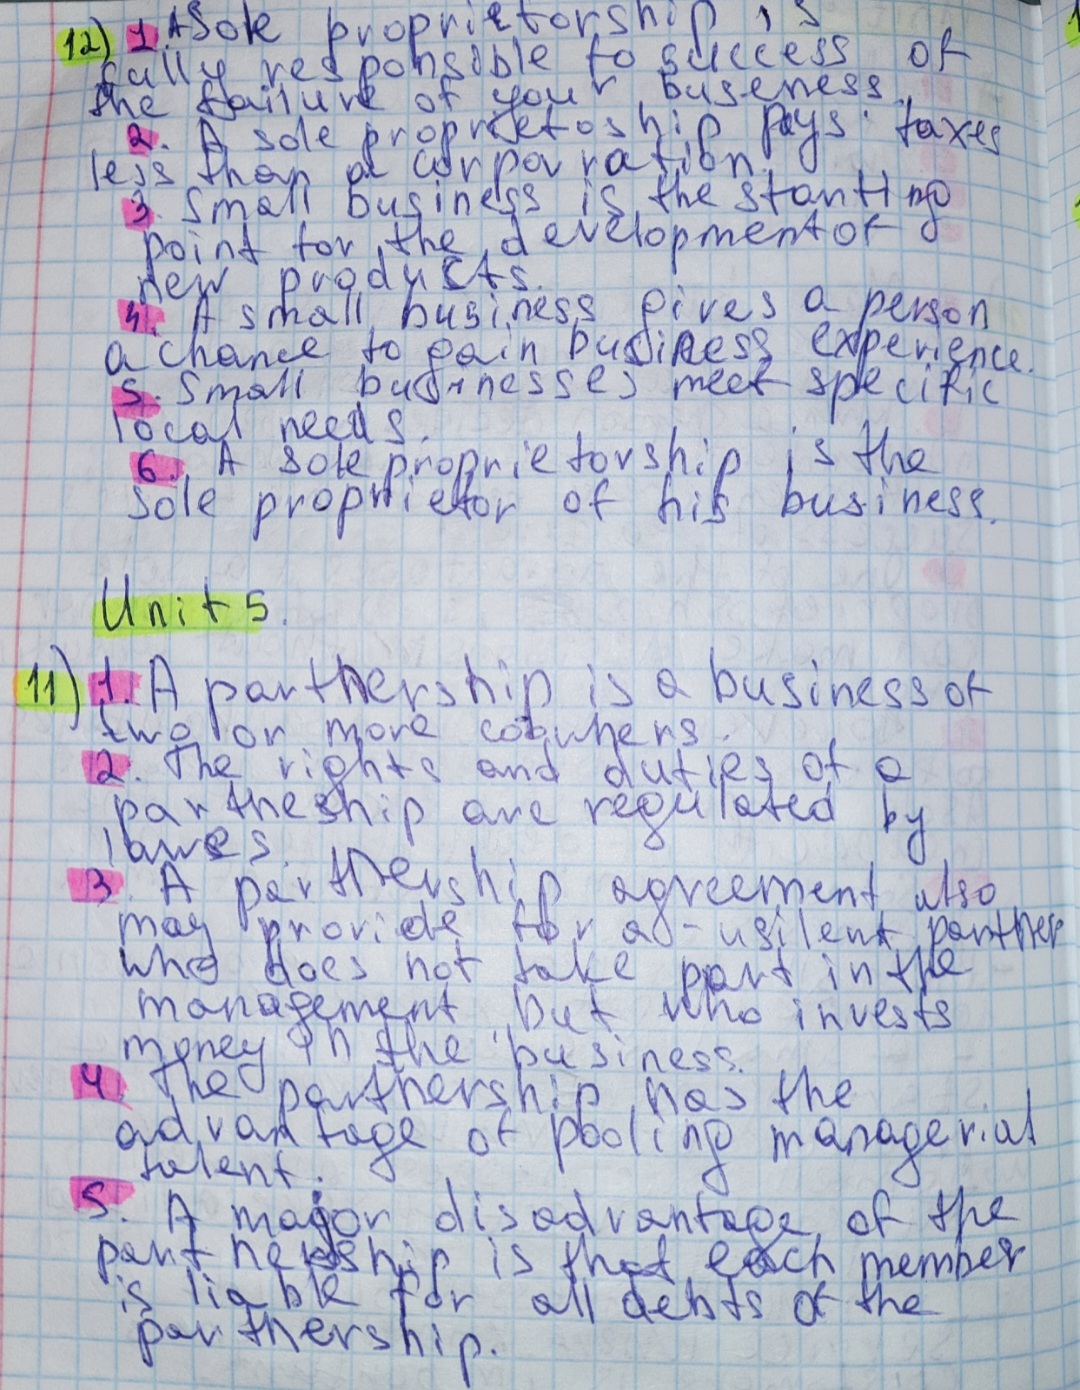 12) 1. A Sole proprietorship is
fully responsible to success of
the failure of your buseness.
2. A sole proprietoship pays taxes
less than a corporration.
3. Small business is the starting
point for the development of
new products.
4. A small business gives a person
a chance to gain business experience.
5. Small businesses meet specific
local needs.
6. A sole proprietorship is the
sole proprietor of his business.
Unit 5.
11) 1. A parthership is a business of
two or more coowners.
2. The rights and duties of a
partheship are regulated by
lawes.
3. A parthership agreement also
may provide for a silent parther
who does not take part in the
management but who invests
money in the business.
4. The parthership has the
advantage of pooling managerial
talent.
5. A major disadvantage of the
partnership is that each member
is liable for all debts of the
parthership.